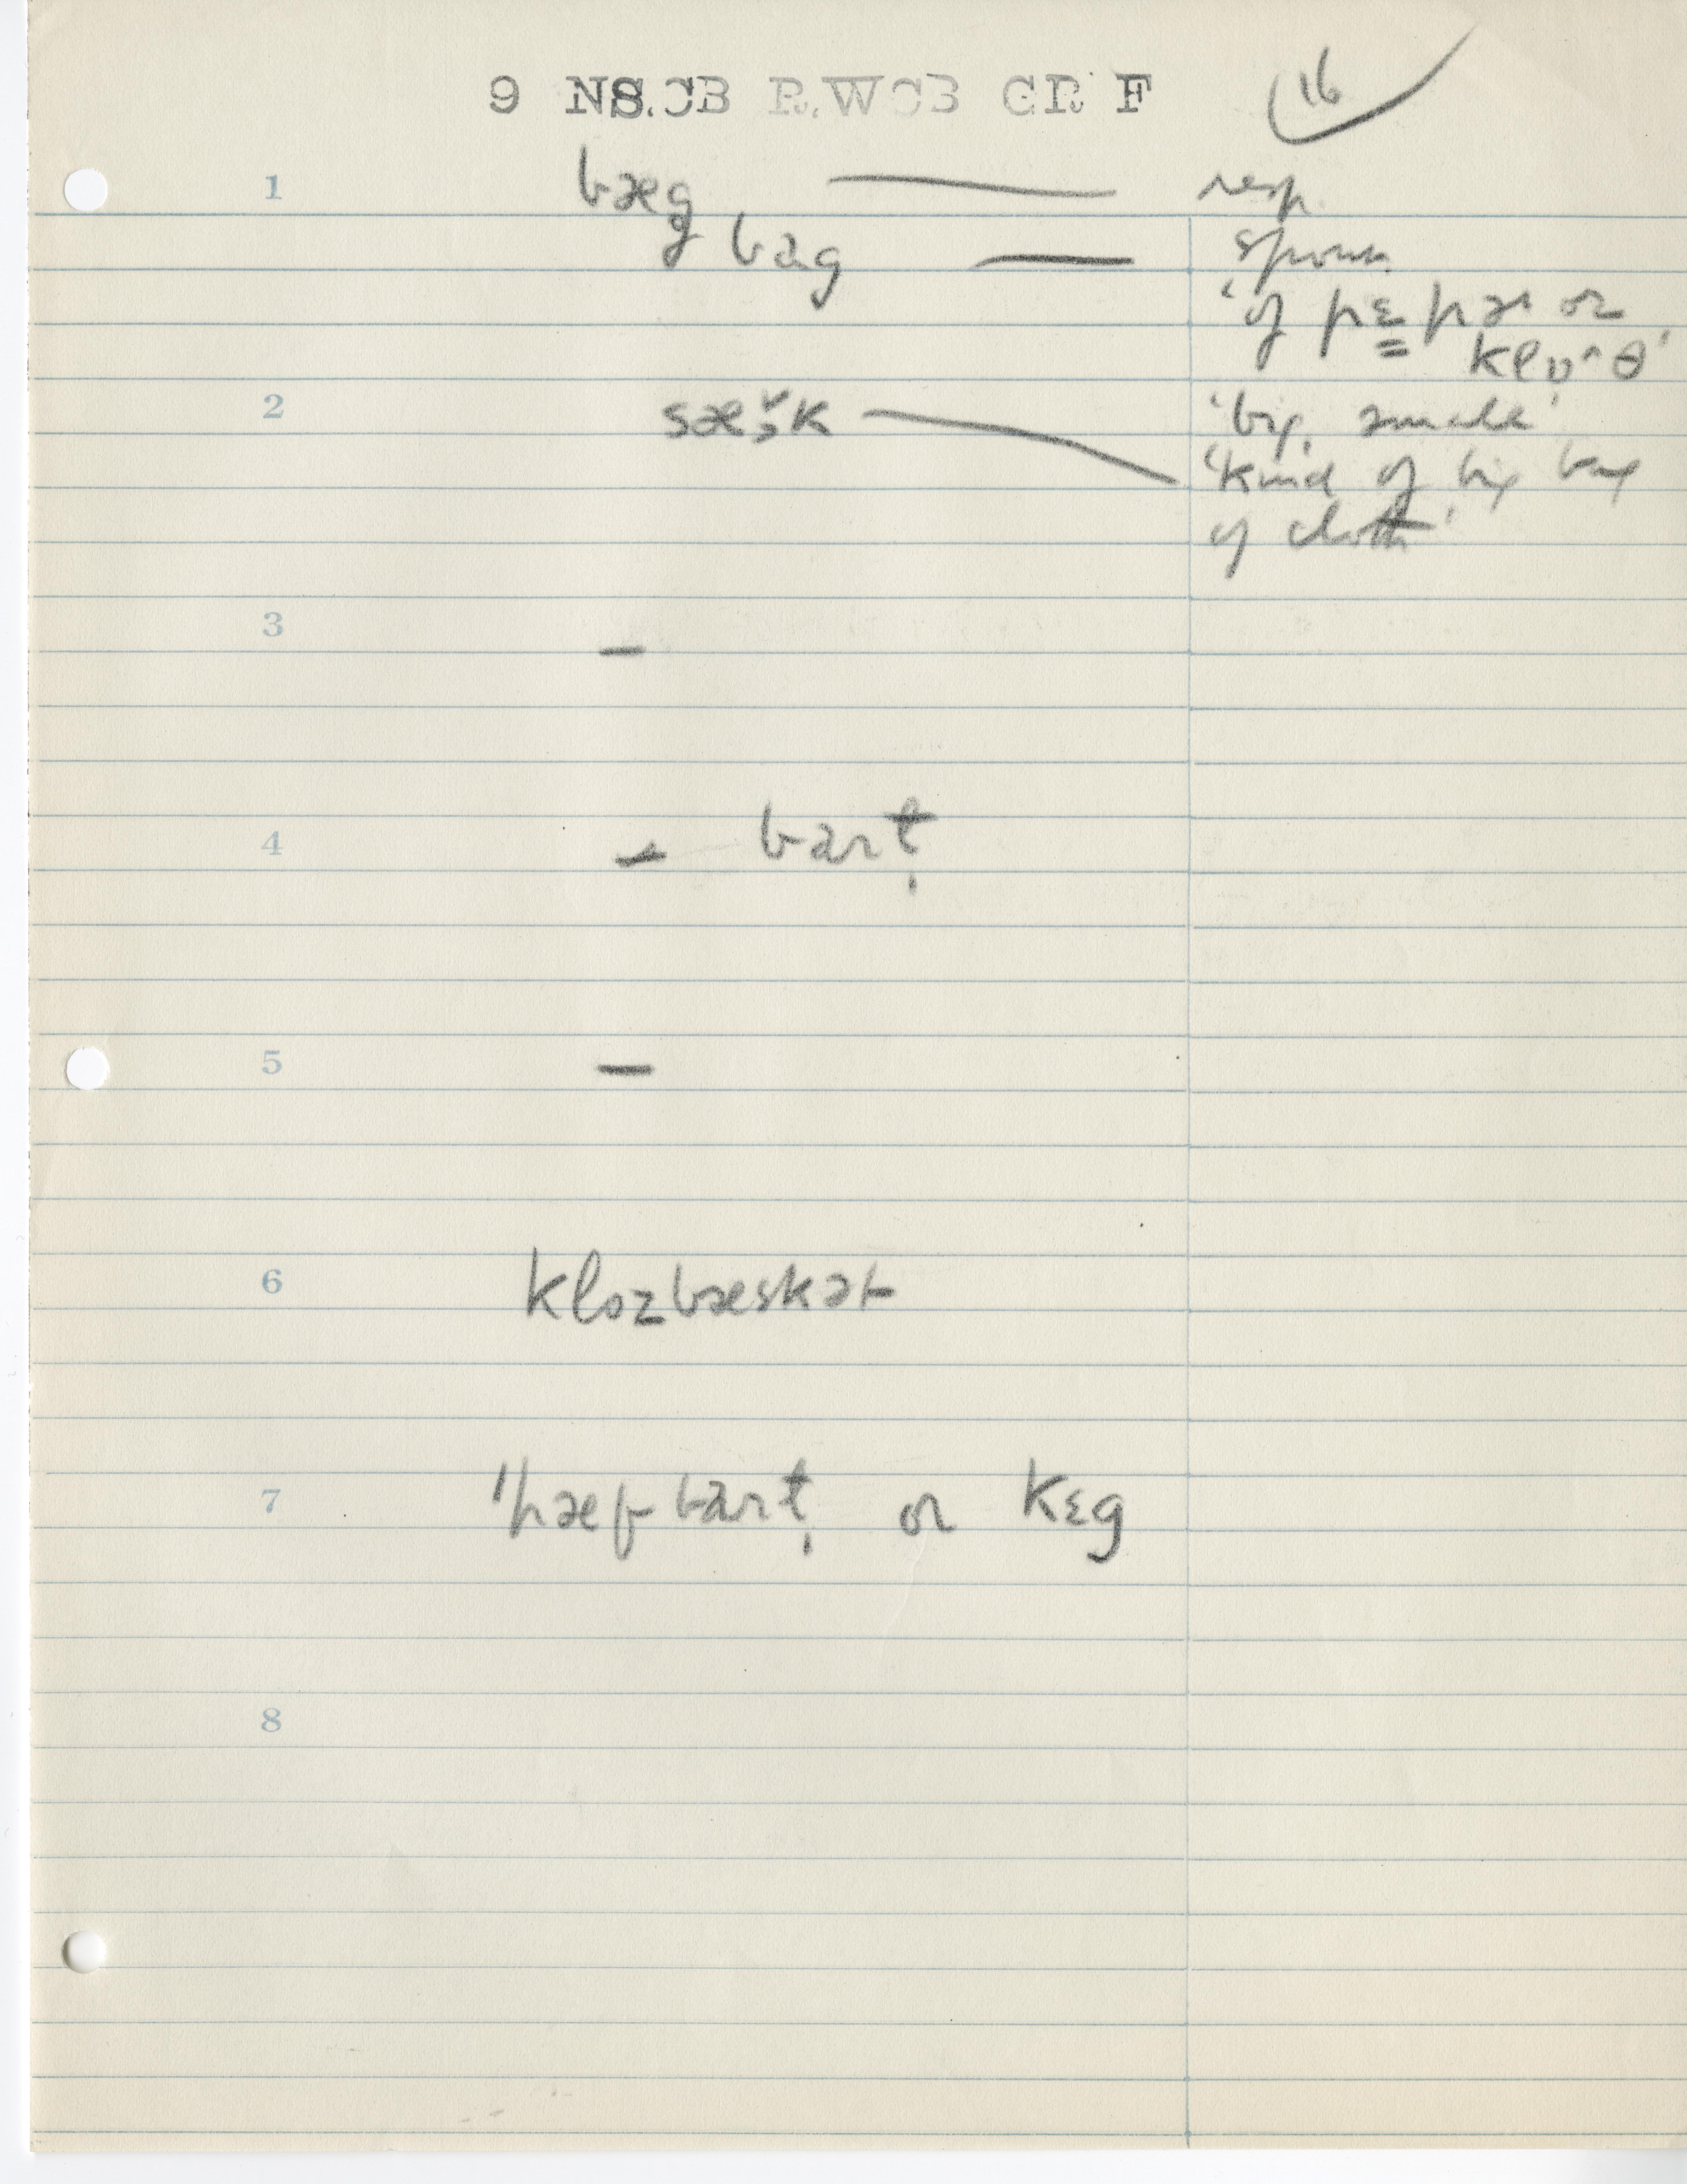 9 NS.CB R.WCB GR F 16
1 bæg — resp.
bag — spon.
'of pɛpɚ or
klɒ^θ'
2 sæˇk — 'big, small'
'kind of big bag
of cloth'
3 –
4 – barṭ
5 –
6 klozbæskət
7 'hæfbarṭ or kɛg
8